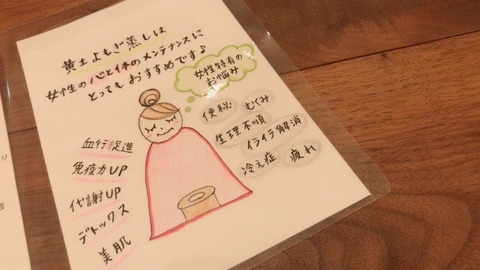 黄土よもぎ蒸しは
女性の心と体のメンテナンスに
とってもおすすめです♪
女性特有の
お悩み
便秘 むくみ
生理不順
イライラ解消
冷え症 疲れ
血行促進
免疫力UP
代謝UP
デトックス
美肌